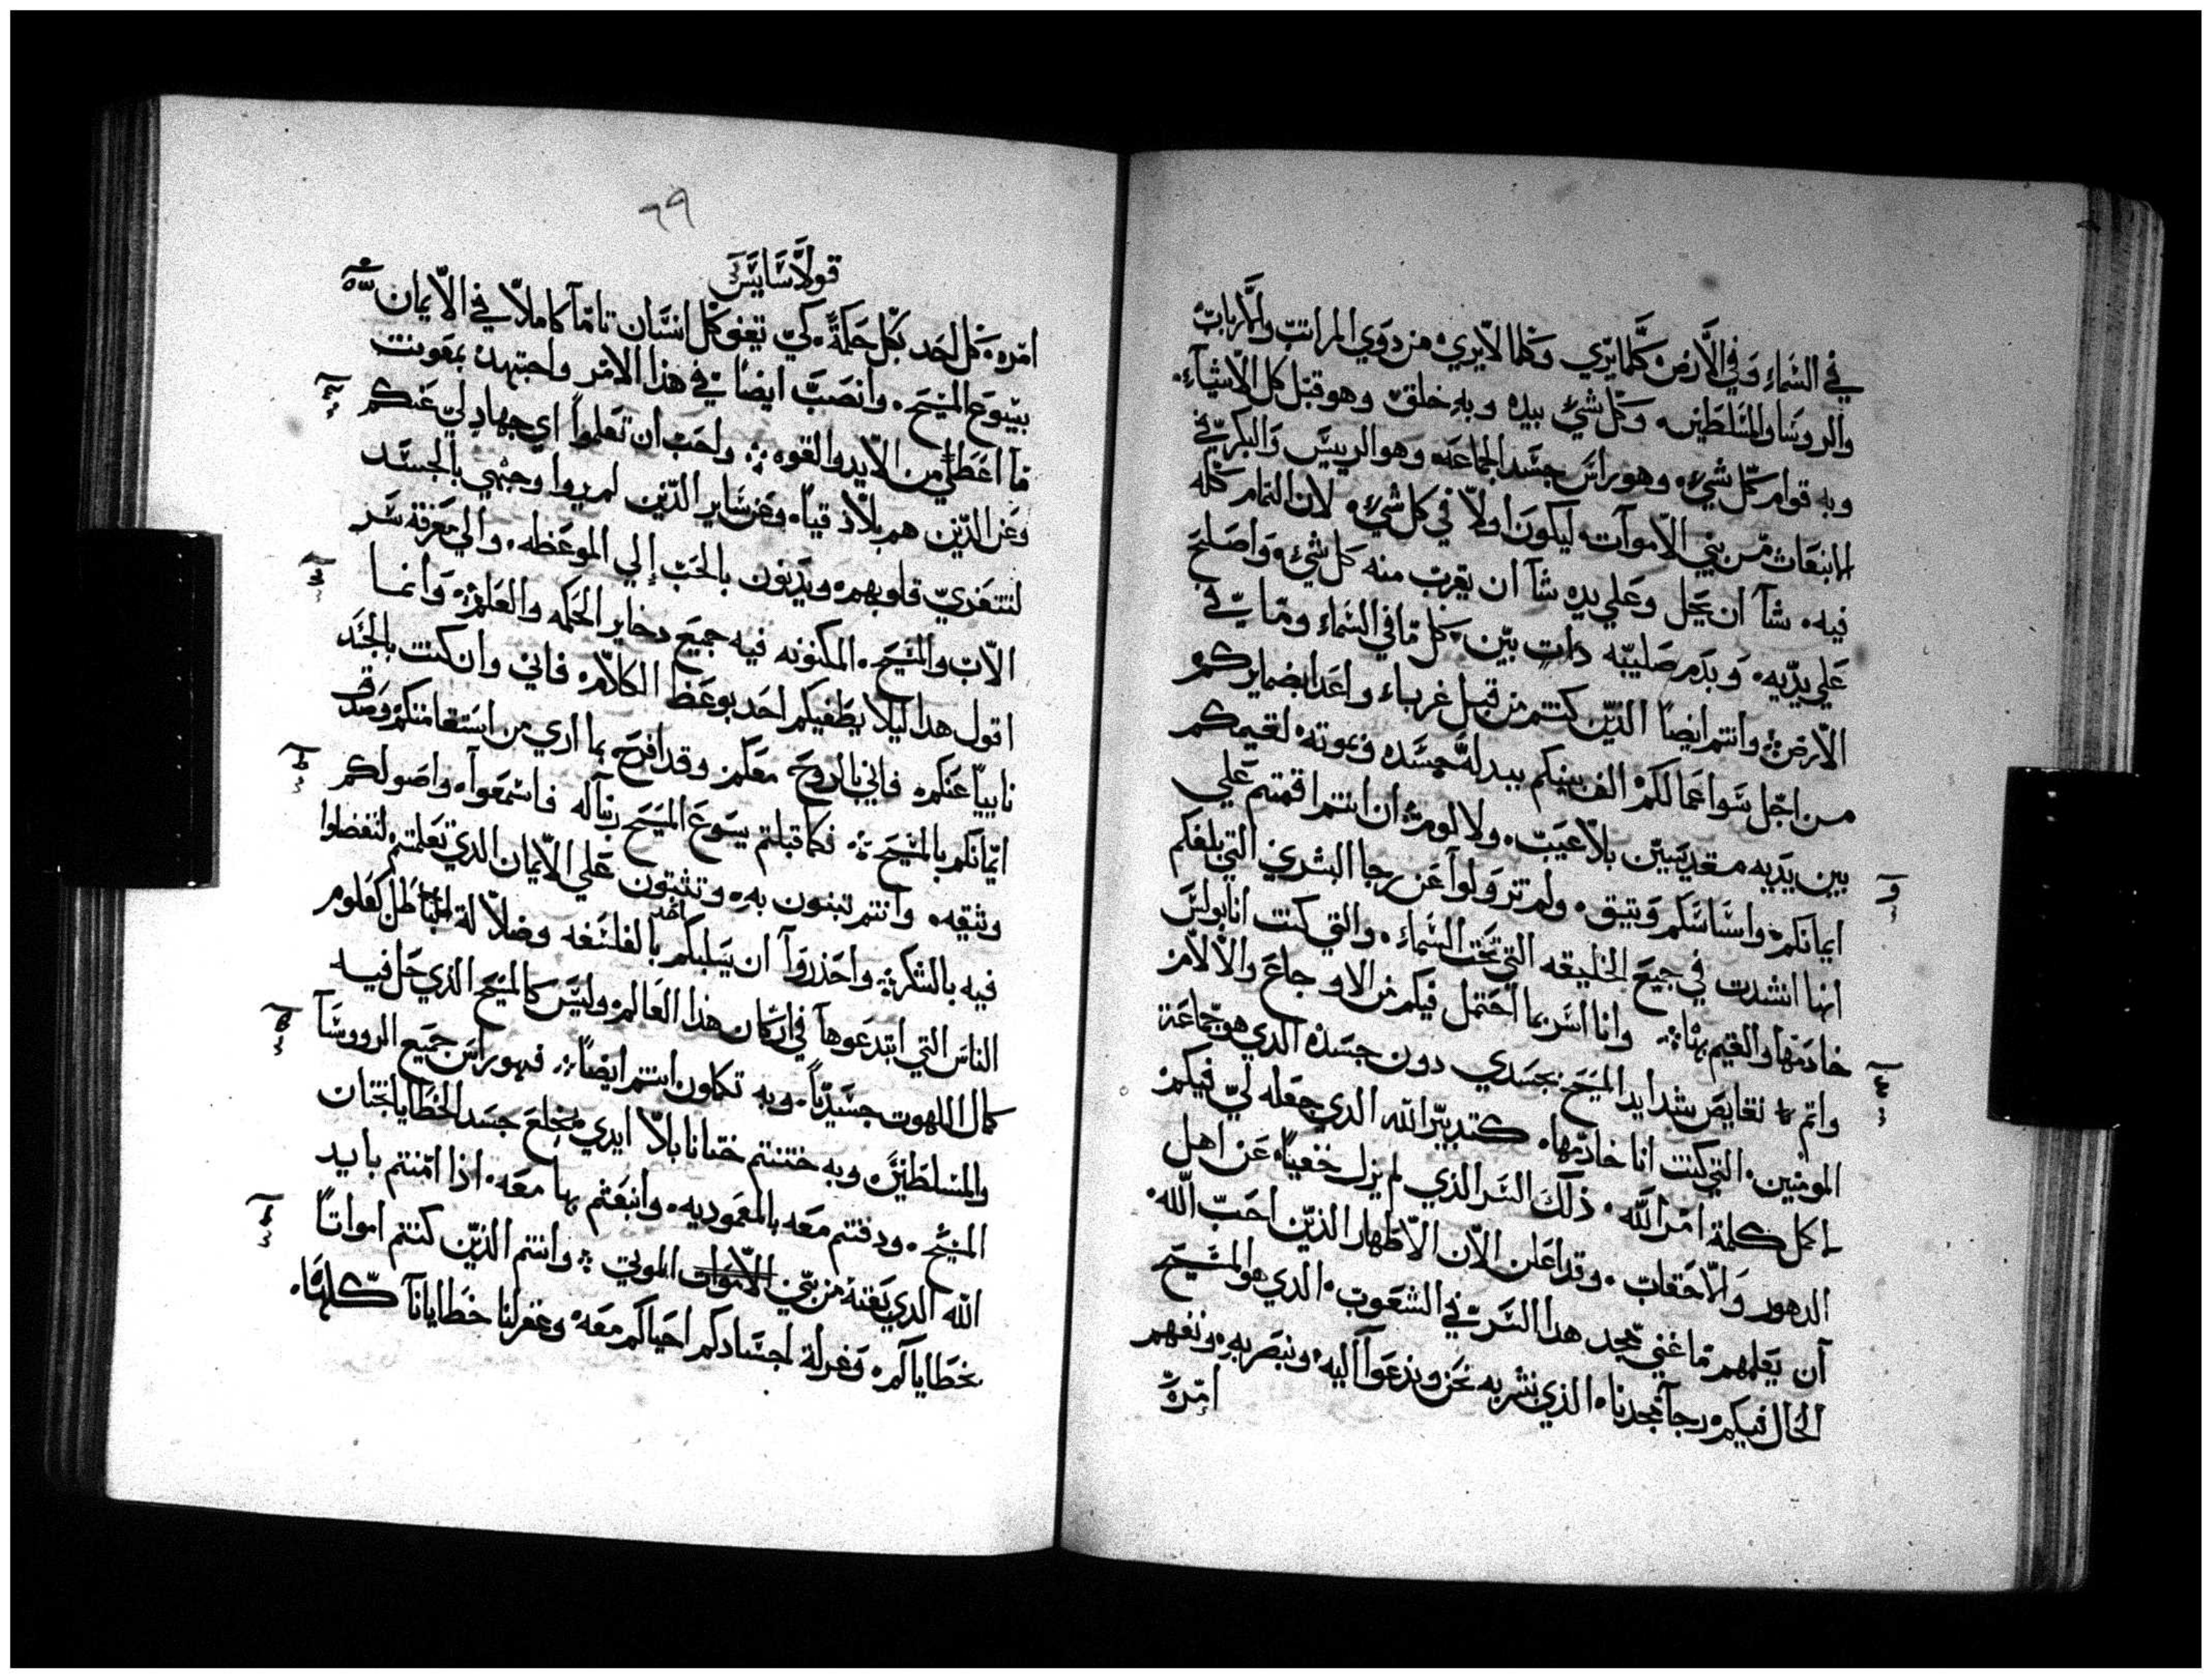 في السَماءِ وَفي الاَّرضْ كَلمايرّي وكلما لايريْ من دوي المراتبّ والاَّرباتْ
والروسَاوالمسَلطَين وكل شيْ بيده وبهِ خلقْ وهوقبّل كل الاشياءِ.
وبه قوام كل شيْ وهوراسَ جسَد الجماعَه وهو الرييسَ والبكريّ في
الانبعَاث مّن بيني الاموآت ليكونَ اولاً في كل شيْ لان التمام كله
فيه شآ ان يحَل وعَلي يده شآ ان يقربَ منه كل شيْ واصَلحَ
علي يدّيه وبدَم صَليبّه دات بيّن كل ما في السَماء ومّا يّ في
الارضْ وانتم ايضاً الديّن كنتم من قبل غرباء واعَدا بضمايركم
من اجّل سَوا عمالكمْ الف بينكم ببدله جسَده وبموته لقيمكم
بين يَديه مقديسّين بلاّ عَيبّ ولا لومْ ان انتم اقمتم عَلي
ايمانكم واسَاسَكم وَتيق ولم تزولوا عَن رجا البشري التي بلغكم
انها انشدت في جميَع الخليقه التي تحَت السَماء والتي كنت انابولسَ
خادمَها والقيم بهَا وانا اسَر بما احَتمل فيكم من الاوجاعَ والالام
واتم نقايصَ شدايد المسَيحَ بجسَدي دون جسَده الدي هو جماعَة
المومنين التي كنت انا خادمها كتدبيّر الله الدي جعَله ليّ فيكم
لاكمل كلمة امر الله ذلك السَر الذي لم يزل خفياً عَن اهل
الدهور والاّحَقاب وقد اعَلن الاّن الاّطهار الذيّن احَبّ الله
آن يعَلمهم مّا غني مجد هدا السَر في الشعَوب الدي هو المسَيح
الحال فيكم رجآ مجدنا الذي نبشر به نحَن وندعَوا اليه ونبصَر بهِ ونفهم
امّرهْ
٦٩
قولاَّسَّايسَ
امره كل احَد بكل حَكمةً كيّ نقيم كل انسَّان تامّاً كاملاّ في الاّيمان
بيسَوعَ المسَيحَ وانصَبَّ ايضاً في هذا الامر واجتهدْ بمعَونت
مآ اعَطيّ من الايد والقوه واحَبّ ان تعَلموا ايّ جهاد لي عَنكم
وعَن الديّن هم بلاّذقيا وعَن سَاير الدّين لم يروا وجهي بالجسَد
لتتعَزيّ قلوبهم ويدَنون بالحَبّ إلي الموعَظه والي معَرفة سَر
الاّب والمسَيحَ المكنونه فيه جميعَ دخاير الحَكمه والعَلم وانما
اقول هدا ليلا يطَغيكم احَد بوعَظ الكلاّم فاني وان كنت بالجسَد
ناييّا عَنكم فاني بالروحَ معَكم وقد افرحَ بما اري من اسَتقامتكم وصَدق
ايّمانكم بالمسَيحَ فكما قبلتم يسَوعَ المسَيحَ ربنآ له فاسَمعَوا واصَولكم
وتيقه وانتم تبنون بهِ وتثبتون عَلي الاّيمان الدي تعَلمتم لتفضلوا
فيه بالشكر واحَذروآ ان يسَلبكم احد بالفلسَفه وضلاّلة الباطَل كعَلوم
الناسَ التي ابتدعَوهآ في اركان هذا العَالم وليسَ كالمسَيحَ الذي حَل فيه
كمال اللهوت جسَديّاً وبه تكملون انتم ايضاً فهو راسَ جميَع الرووسَآ
والمسَلطَين وبه ختنتم ختانا بلاّ ايدي بخلعَ جسَد الخطَايا بختان
المسَيحَ ودفنتم معَه بالمعَموديه وانبعَثم بها معَه اذا امّنتم بايد
الله الدي بعَثه من بيّن الاّموات الموتي وانتم الذيّن كنتم امواتاً
بخطَاياكم وغرلة اجسَادكم احَياكم معَه وغفر لنا خطَايانآ كلهَا